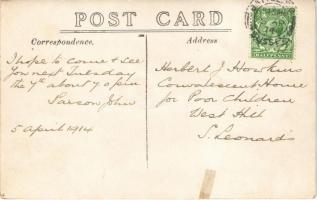 POST CARD
Correspondence.
Address
I hope to come & see
you next Tuesday
the 7th about 7 o p.m
Parson John
5 April 1914
Herbert J Hawkins
Convalescent Home
for Poor Children
West Hill
S. Leonards
HALFPENNY